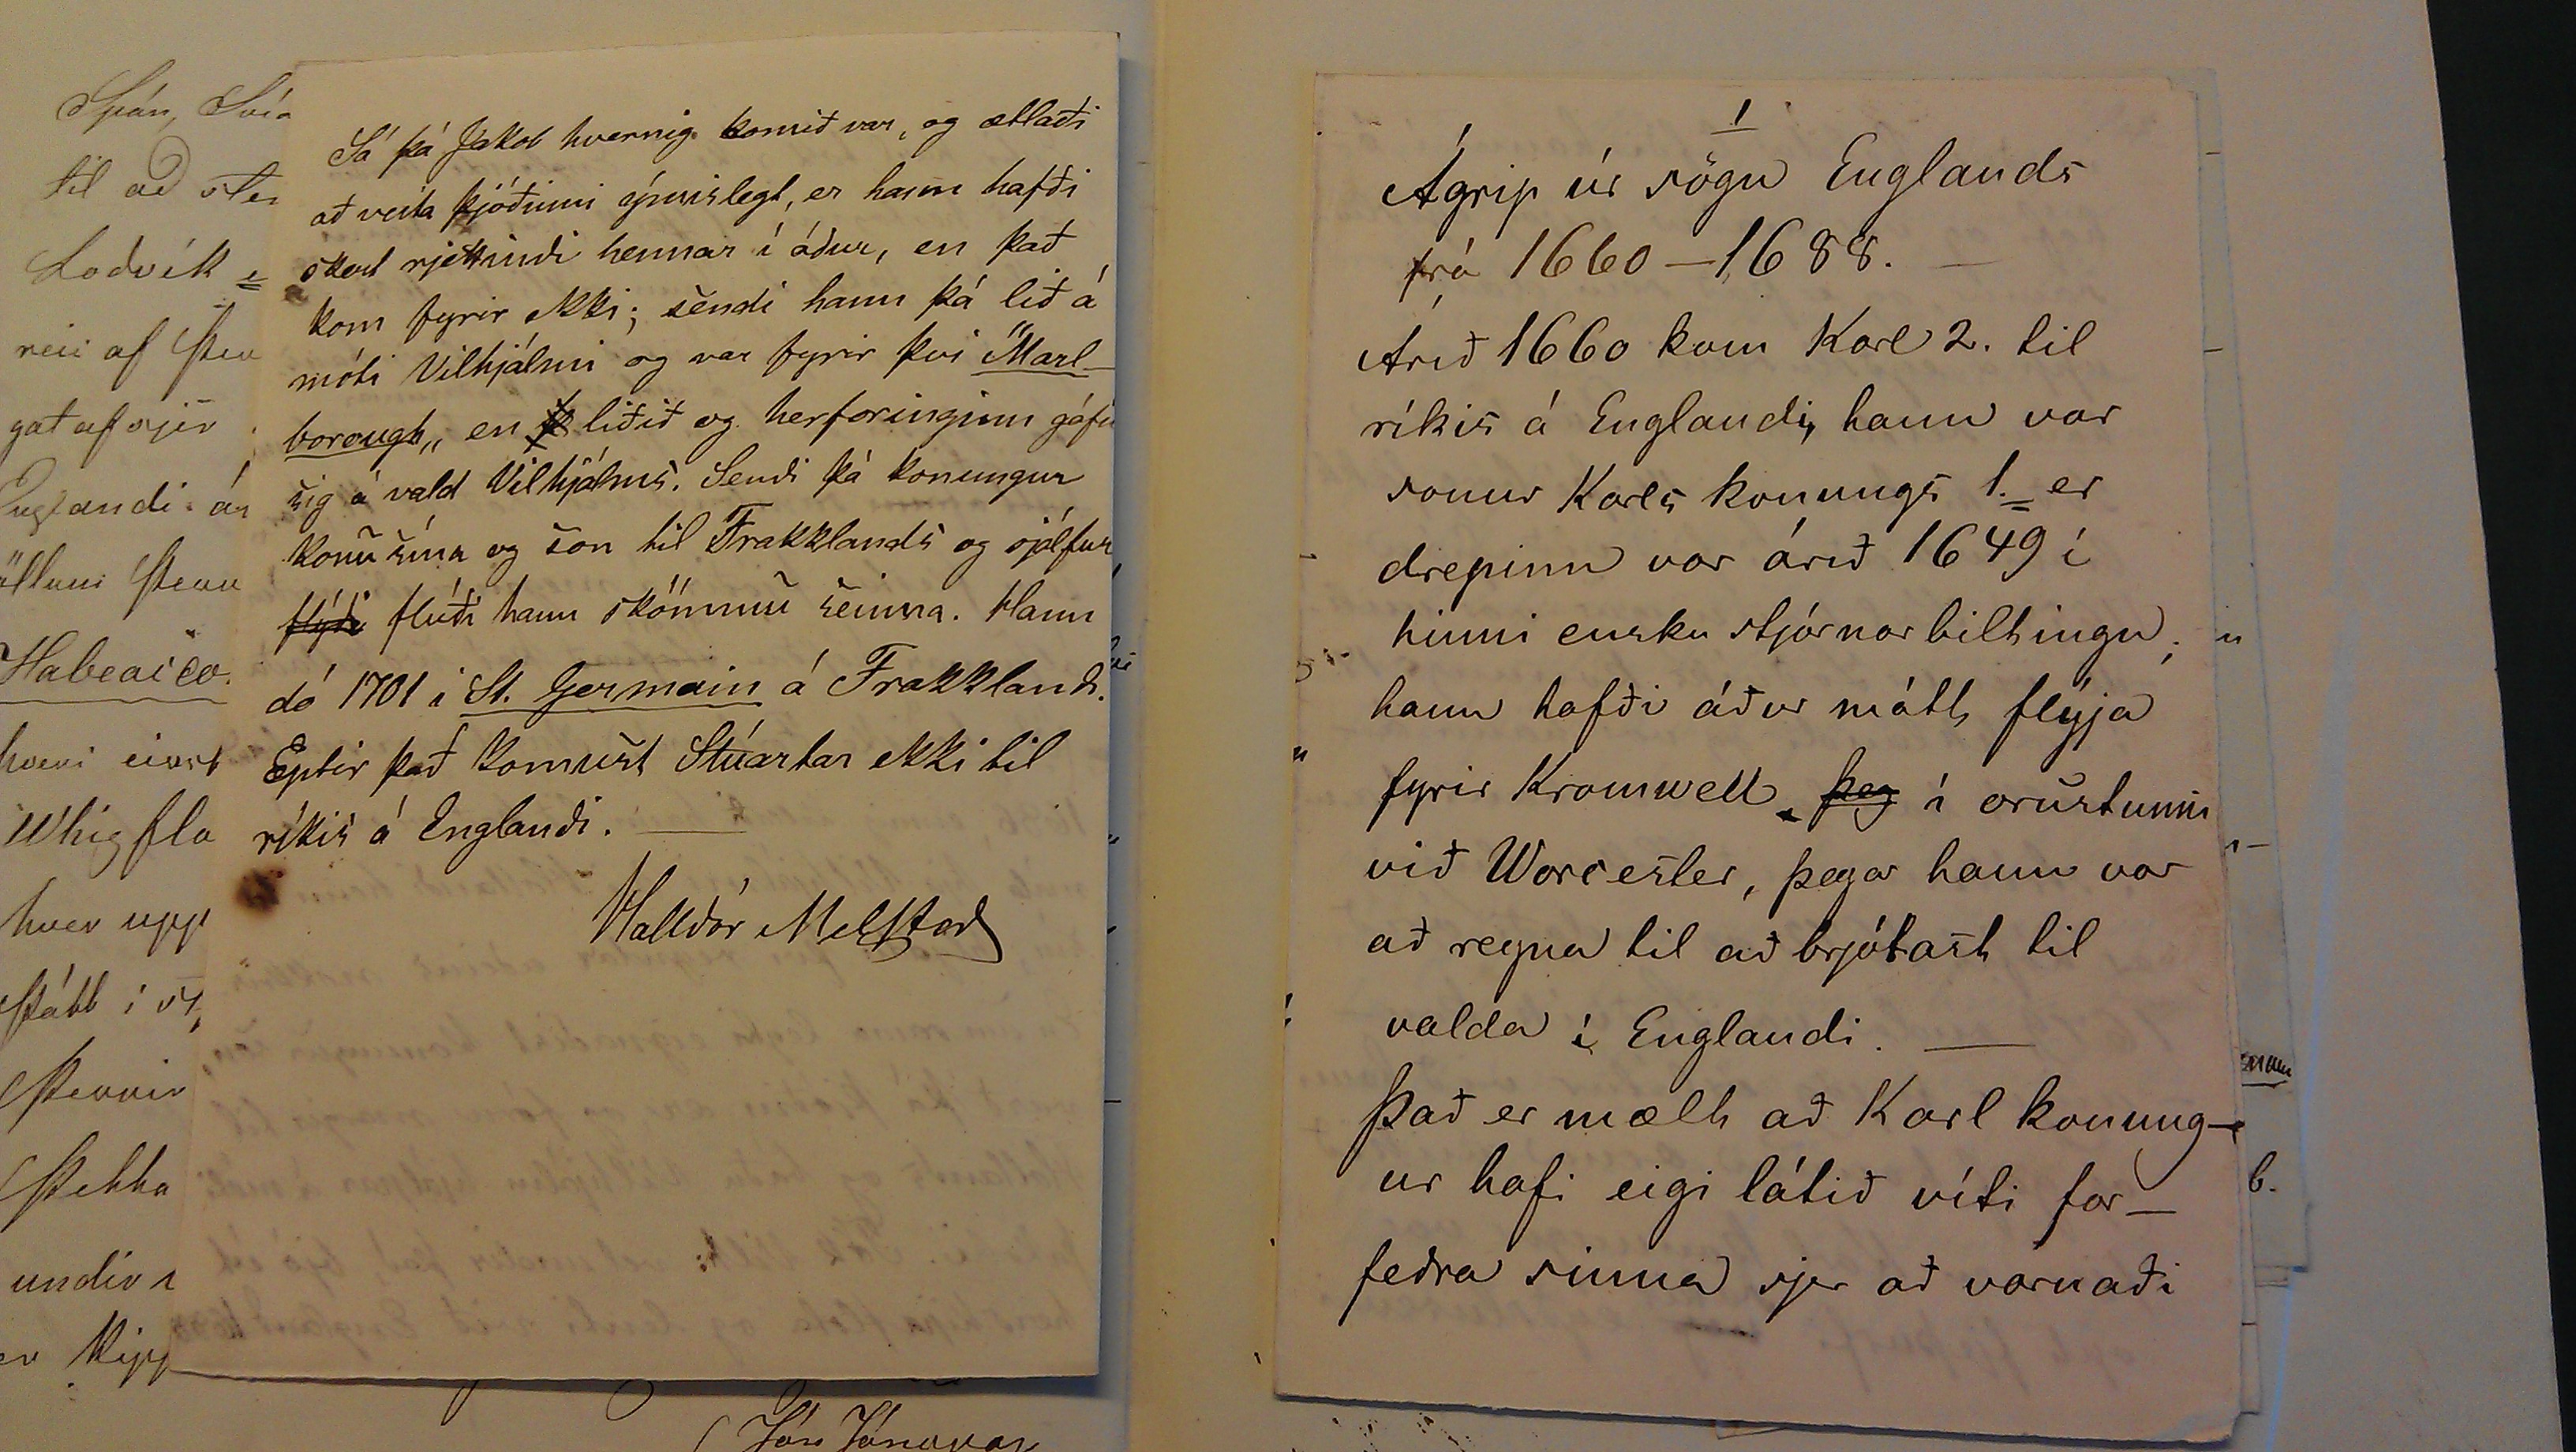 Spán, Svía
til að
Loðvík
reis af
gat af sjer
Englandi
öllum
Habeas co
Whig flo
hver upp
Þátt í
Þessir
Þekka
undir
Sá þá Jakob hvernig komið var, og ætlaði
að veita þjóðinni ýmislegt, er hann hafði
skert rjettindi hennar í áður, en það
kom fyrir ekki; sendi hann þá lið á
móti Vilhjálmi og var fyrir því "Marl-
borough„ en liðið og herforinginn gáfu
sig á vald Vilhjálms. Sendi þá konungur
konu sína og son til Frakklands og sjálfur
flýði flúði hann skömmu seinna. Hann
dó 1701 í St. Germain á Frakkland.
Eptir það komust Stúartar ekki til
ríkis á Englandi. —
Halldór Melstað
Jón Jónsson
1
Ágrip úr sögu Englands
frá 1660 — 1688. —
Árið 1660 kom Karl 2. til
ríkis á Englandi, hann var
sonur Karls konungs 1. er
drepinn var árið 1649 í
hinni ensku stjórnarbiltingu;
hann hafði áður mátt flýja
fyrir Kromwell, þeg í orustunni
við Worcester, þegar hann var
að reyna til að brjótast til
valda í Englandi. —
Það er mælt að Karl konung-
ur hafi eigi látið víti for-
feðra sinna sjer að varnaði
b.